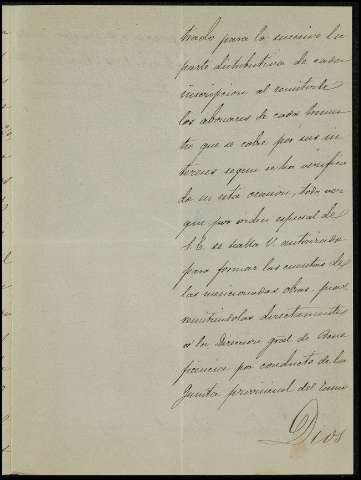 trado para lo sucesivo la
parte distributiva de cada
inscripcion al remitirle
los abonares de cada trimes
tre que se cobre por sus in
tereses segun se ha verifica
do en esta ocasion, toda vez
que por orden especial de
S.E. se halla V. autorizado
para formar las cuentas de
las mencionadas obras pias
remitiendolas directamente
a la Direccion gral. de Bene
ficencia por conducto de la
Junta provincial del ramo
Dios